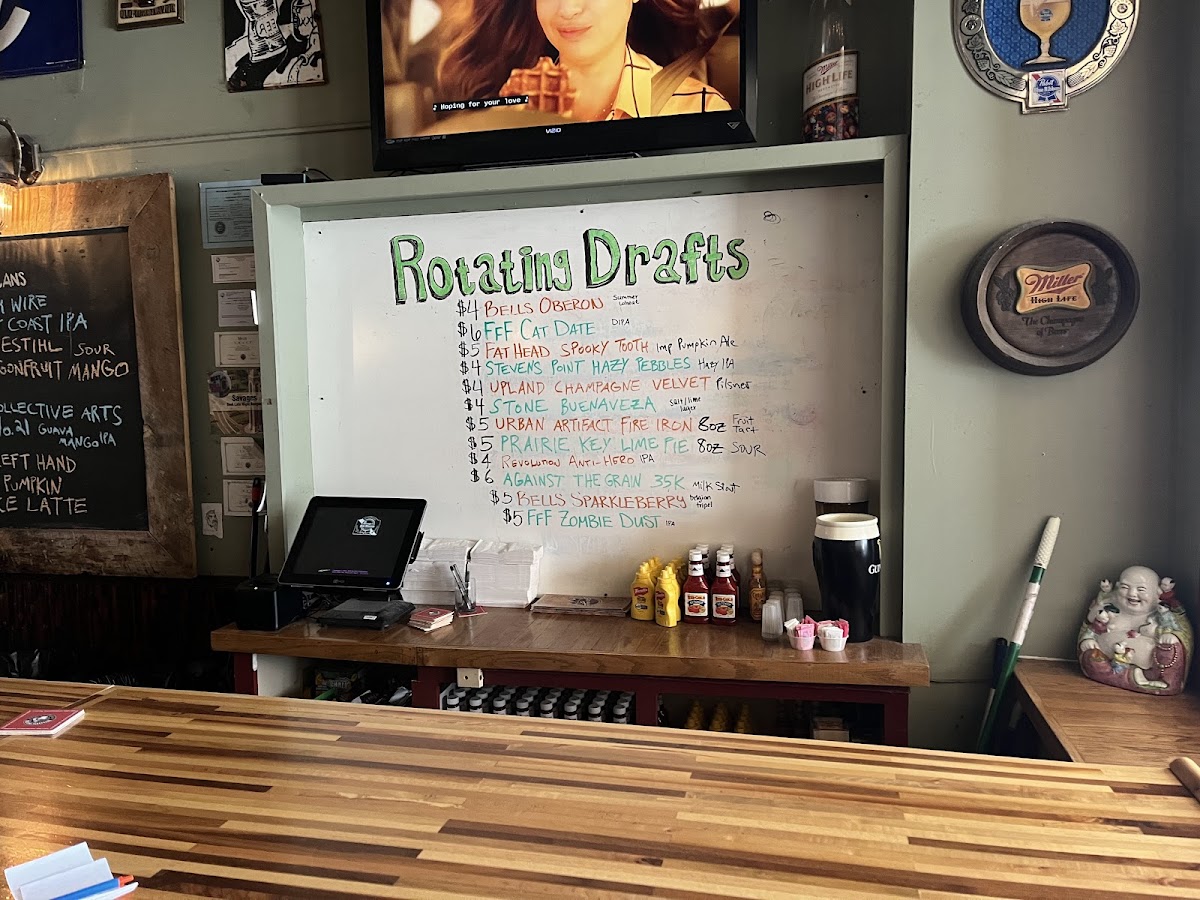 ♪ Hoping for your love ♪
VIZIO
Miller
HIGH LIFE
Pabst
Miller
HIGH LIFE
The Champagne
of Beers
Rotating Drafts
$4 BELLS OBERON Summer Wheat
$6 FFF CAT DATE DIPA
$5 FAT HEAD SPOOKY TOOTH Imp Pumpkin Ale
$4 STEVENS POINT HAZY PEBBLES Hazy IPA
$4 UPLAND CHAMPAGNE VELVET Pilsner
$4 STONE BUENAVEZA Salt/lime lager
$5 URBAN ARTIFACT FIRE IRON 8oz Fruit Tart
$5 PRAIRIE KEY LIME PIE 8oz SOUR
$4 REVOLUTION ANTI-HERO IPA
$6 AGAINST THE GRAIN 35K Milk Stout
$5 BELLS SPARKLEBERRY belgian tripel
$5 FFF ZOMBIE DUST IPA
ANS
WIRE
COAST IPA
ESTIHL SOUR
GONFRUIT MANGO
OLLECTIVE ARTS
No.21 GUAVA
MANGO IPA
EFT HAND
PUMPKIN
CE LATTE
Savages
RED GOLD
RED GOLD
GU